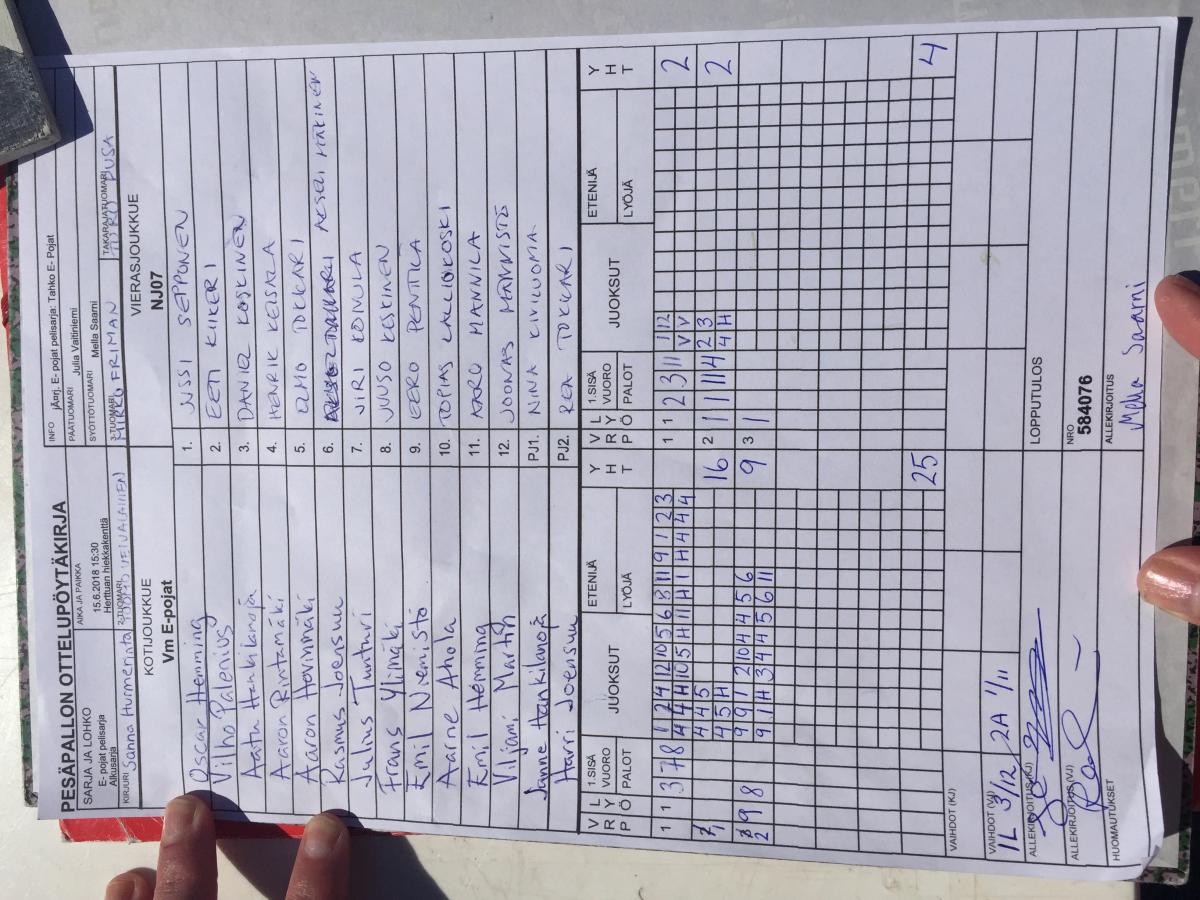 PESÄPALLON OTTELUPÖYTÄKIRJA
SARJA JA LOHKO
E- pojat pelisarja
Alkusarja
AIKA JA PAIKKA
15.6.2018 15:30
Herttuan hiekkakenttä
INFO jÄorj. E- pojat pelisarja: Tahko E- Pojat
PÄÄTUOMARI Julia Valtiniemi
SYÖTTÖTUOMARI Mella Saarni
KIRJURI Sanna Hurmerinta
2-TUOMARI
3-TUOMARI MIRKO FRIMAN
TAKARAJATUOMARI BUSA
KOTIJOUKKUE
Vm E-pojat
VIERASJOUKKUE
NJ07
Oscar Hemming 1. JUSSI SEPPONEN
Vilho Palenius 2. EETI KIIKERI
Aatu Hankilanoja 3. DANIEL KOSKINEN
Aaron Rintamäki 4. HENRIK KESKLA
Aaron Hovinmäki 5. OLMO TOKKARI
Rasmus Joensuu 6. AKSELI MÄKINEN
Julius Tunturi 7. JIRI KOIVULA
Frans Ylimäki 8. JUUSO KESKINEN
Emil Niemistö 9. EERO PENTTILÄ
Aarne Ahola 10. TOPIAS KALLIOKOSKI
Emil Hemming 11. AARO MANNILA
Viljami Martin 12. JOONAS MÄNNISTÖ
Janne Hankilanoja PJ1. NINA KIVILUOMA
Harri Joensuu PJ2. REA TOKKARI
V R P
L Y Ö
1.SISÄ VUORO
PALOT
JUOKSUT
ETENIJÄ
LYÖJÄ
Y H T
V R P
L Y Ö
1.SISÄ VUORO
PALOT
JUOKSUT
ETENIJÄ
LYÖJÄ
Y H T
1 1 3 7 8 1 2 4 12 10 5 6 8 11 9 1 2 3
4 4 H 10 5 H 11 H 1 H 4 4 4
1 1 2 3 11 1 12 2
V V
4 4 5 16
4 5 H
2 1 1 11 4 2 3 2
4 H
2 9 8 9 9 1 2 10 4 4 5 6 9
9 1 H 3 4 4 5 6 11
3 1
25
4
VAIHDOT (KJ)
VAIHDOT (VJ)
1L 3/12, 2A 1/11
ALLEKIRJOITUS (KJ)
ALLEKIRJOITUS (VJ)
HUOMAUTUKSET
LOPPUTULOS
NRO
584076
ALLEKIRJOITUS
Mella Saarni